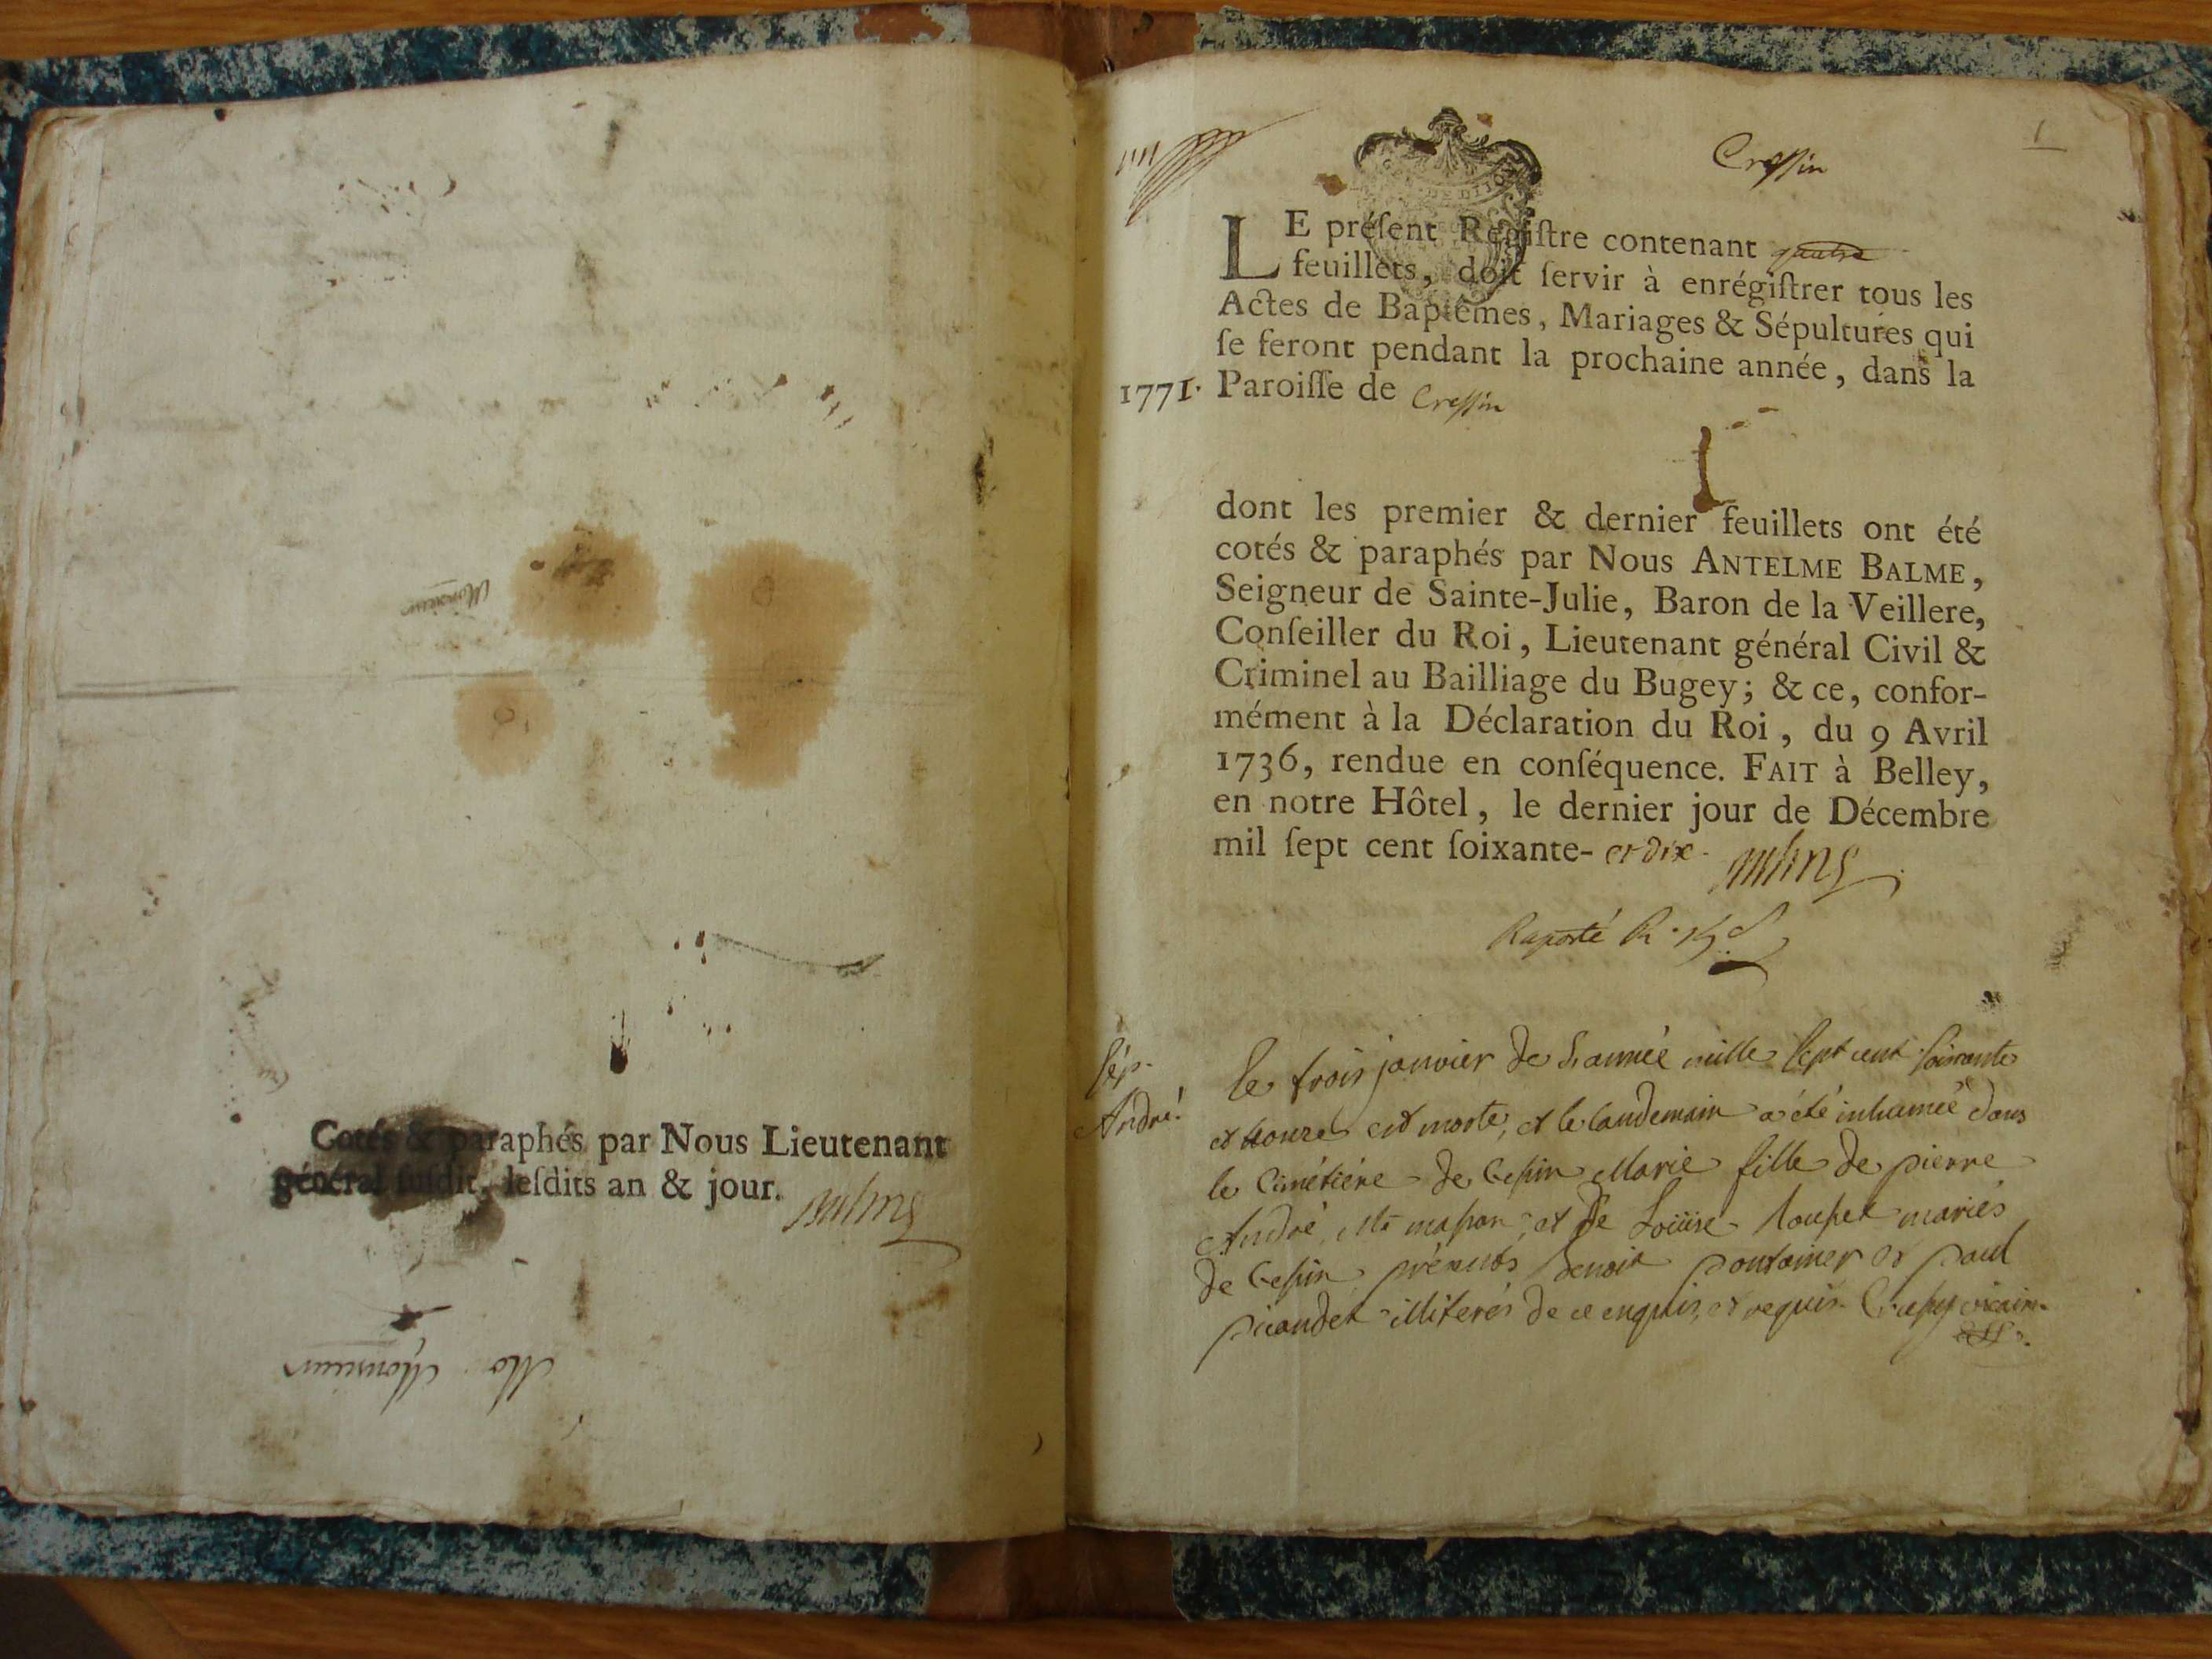 Monsieur
Cotés & paraphés par Nous Lieutenant
général susdit, leſdits an & jour.
Mo Monsieur
Cressin
1
LE préſent Regiſtre contenant quatre
feuillets, doit ſervir à enrégiſtrer tous les
Actes de Baptêmes, Mariages & Sépultures qui
ſe feront pendant la prochaine année, dans la
1771. Paroiſſe de Cressin
dont les premier & dernier feuillets ont été
cotés & paraphés par Nous ANTELME BALME,
Seigneur de Sainte-Julie, Baron de la Veillere,
Conſeiller du Roi, Lieutenant général Civil &
Criminel au Bailliage du Bugey; & ce, confor-
mément à la Déclaration du Roi, du 9 Avril
1736, rendue en conſéquence. FAIT à Belley,
en notre Hôtel, le dernier jour de Décembre
mil ſept cent ſoixante- et dix.
Raporté
Sép.
André.
le trois janvier de l'année mille sept cent soixante
et honze est morte, et le landemain a été inhumée dans
le Cimétiére de Marie fille de pierre
André, et de Loüise mariés
de présents benoit pontanier et paul
illiterés de ce enquis, et requis vicaire